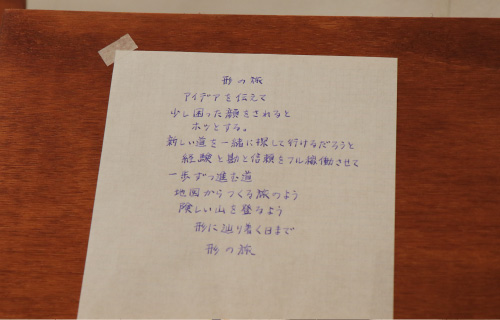 形の旅
アイデアを伝えて
少し困った顔をされると
ホッとする。
新しい道を一緒に探して行けるだろうと
経験と勘と信頼をフル稼働させて
一歩ずつ進む道
地図からつくる旅のよう
険しい山を登るよう
形に辿り着く日まで
形の旅